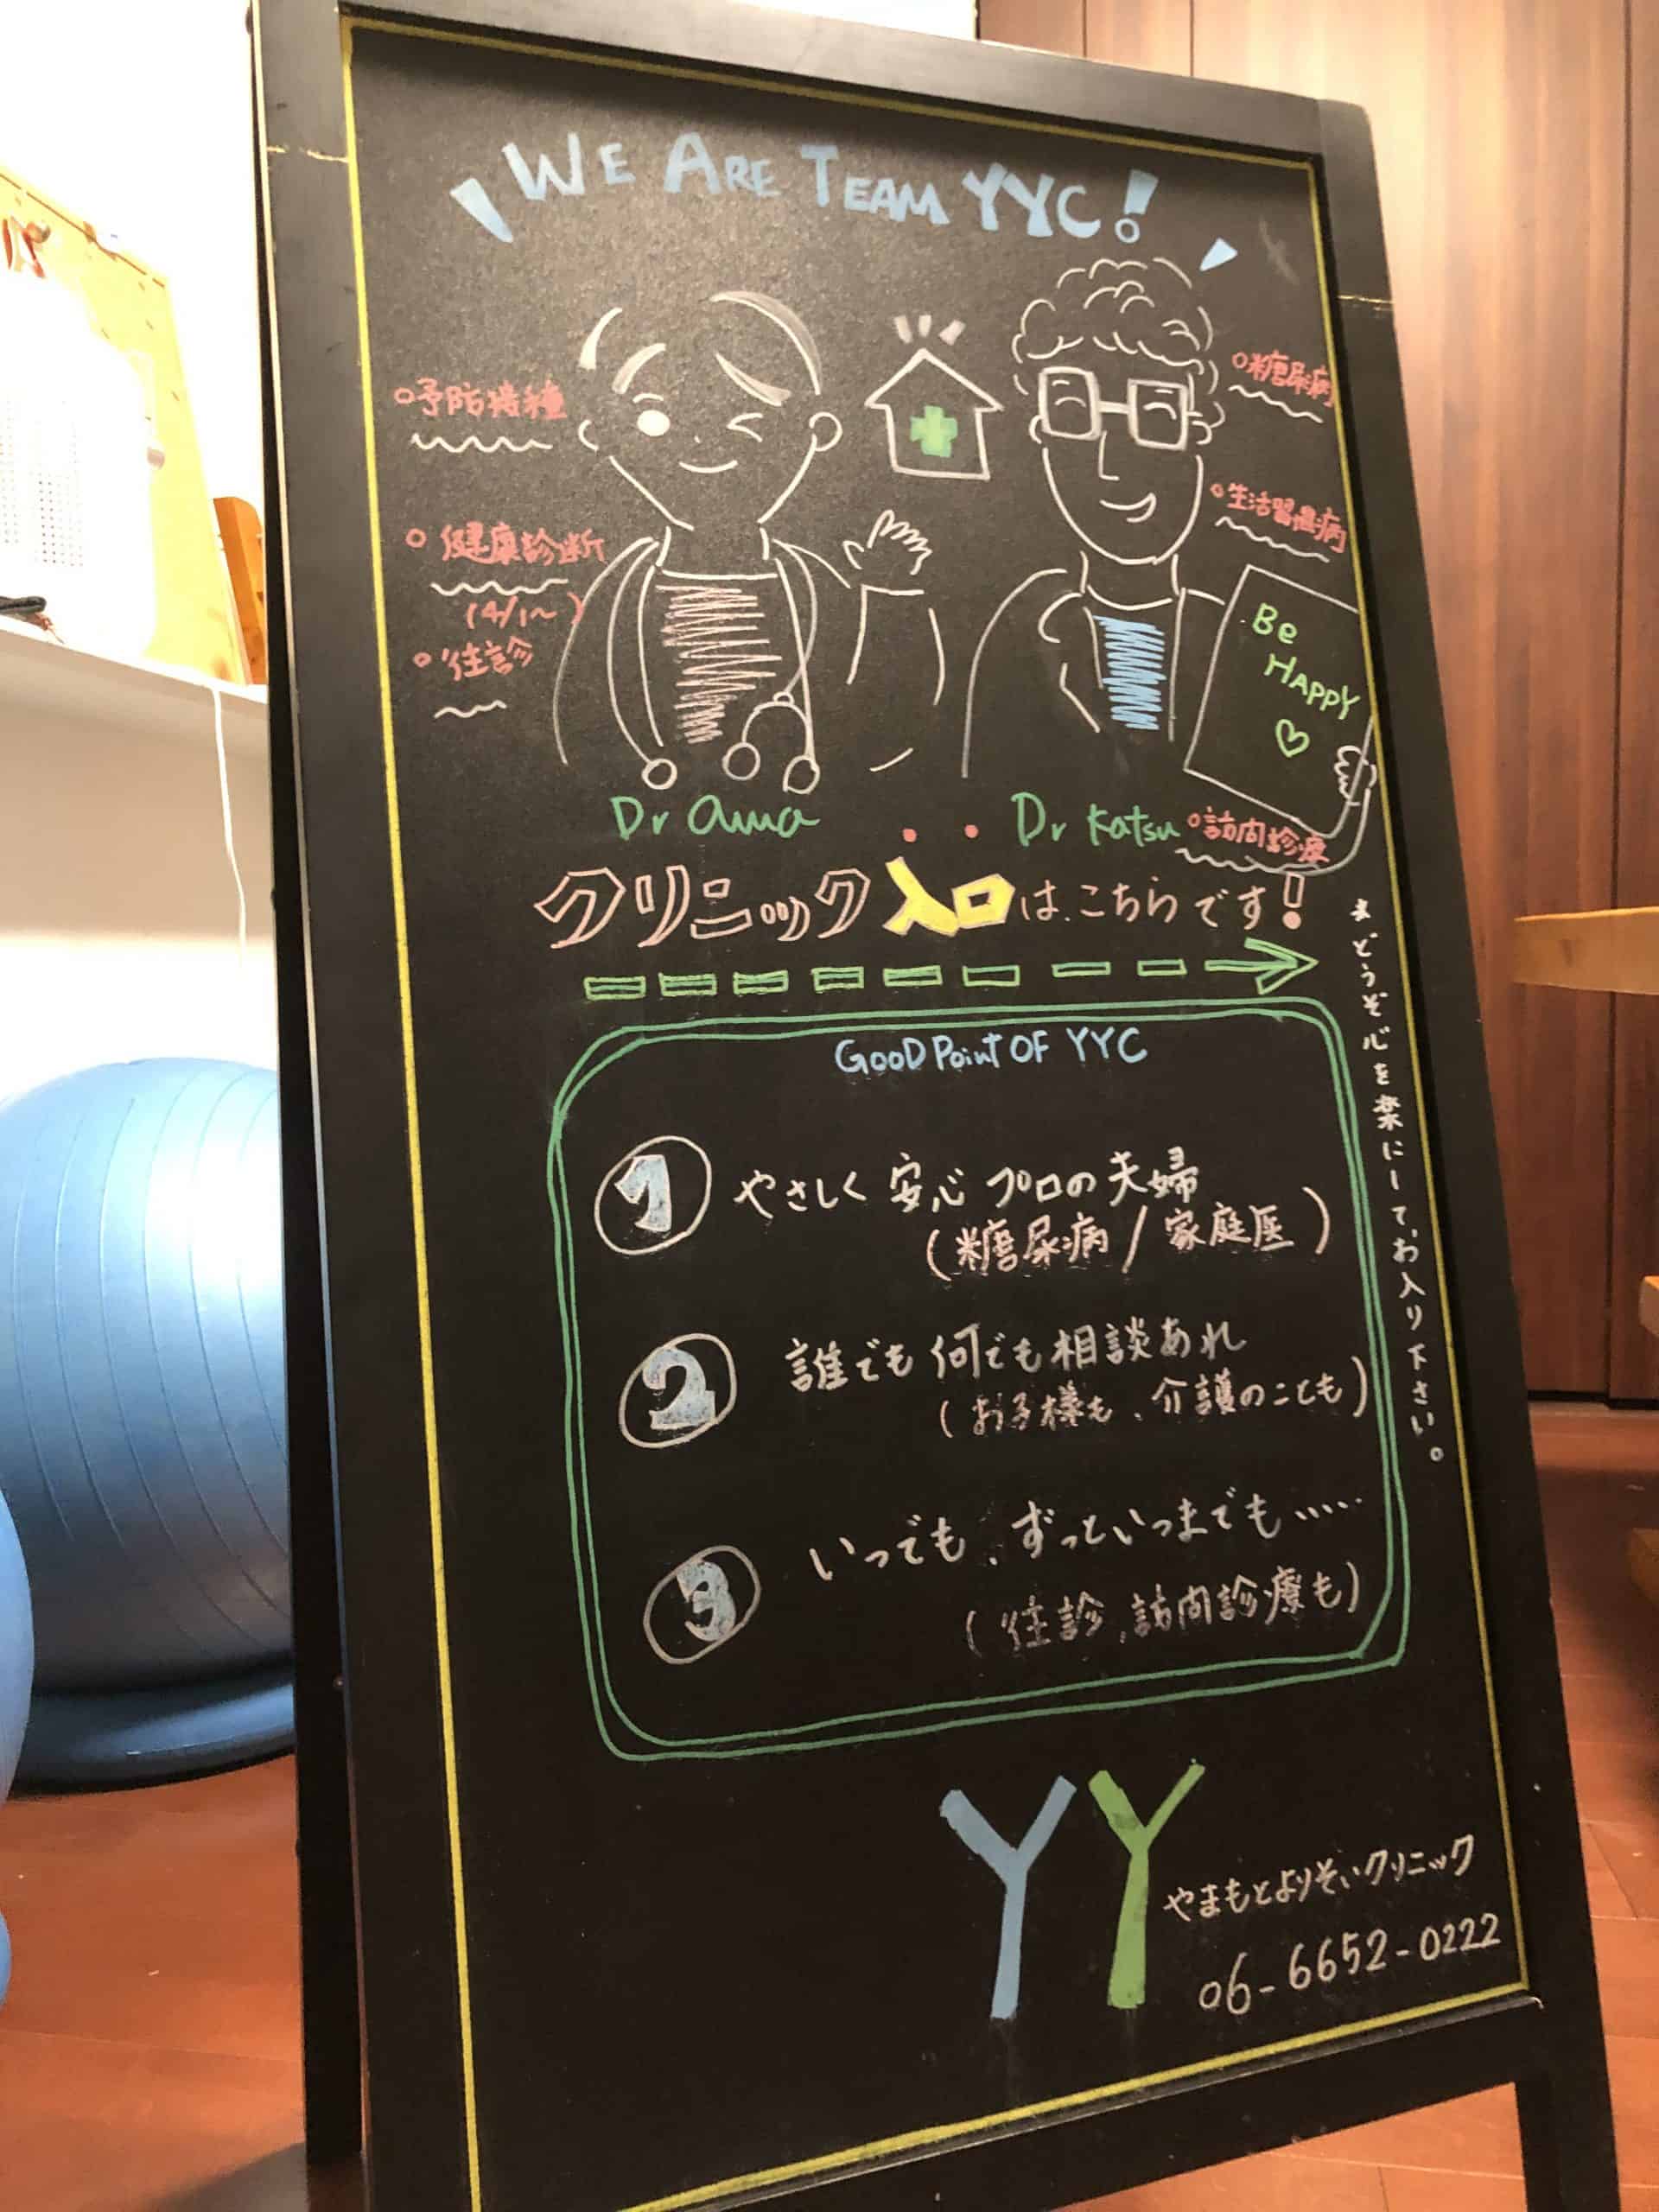 WE ARE TEAM YYC!
○予防接種
○健康診断
(4/1〜)
○往診
○糖尿病
○生活習慣病
Be
HAPPY
♡
Dr ama
Dr Katsu
○訪問診療
クリニック入口は、こちらです!
GOOD Point OF YYC
1 やさしく 安心 プロの夫婦
(糖尿病/家庭医)
2 誰でも 何でも相談あれ
(お子様も、介護のことも)
3 いつでも、ずっといつまでも……
(往診、訪問診療も)
どうぞ心を楽にして、お入り下さい。
YY
やまもとよりそいクリニック
06-6652-0222